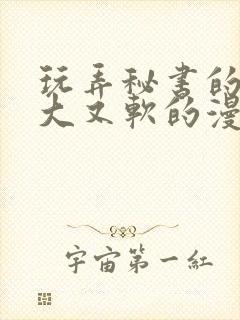 玩弄秘书的
大又軟的漫
宇宙第一紅